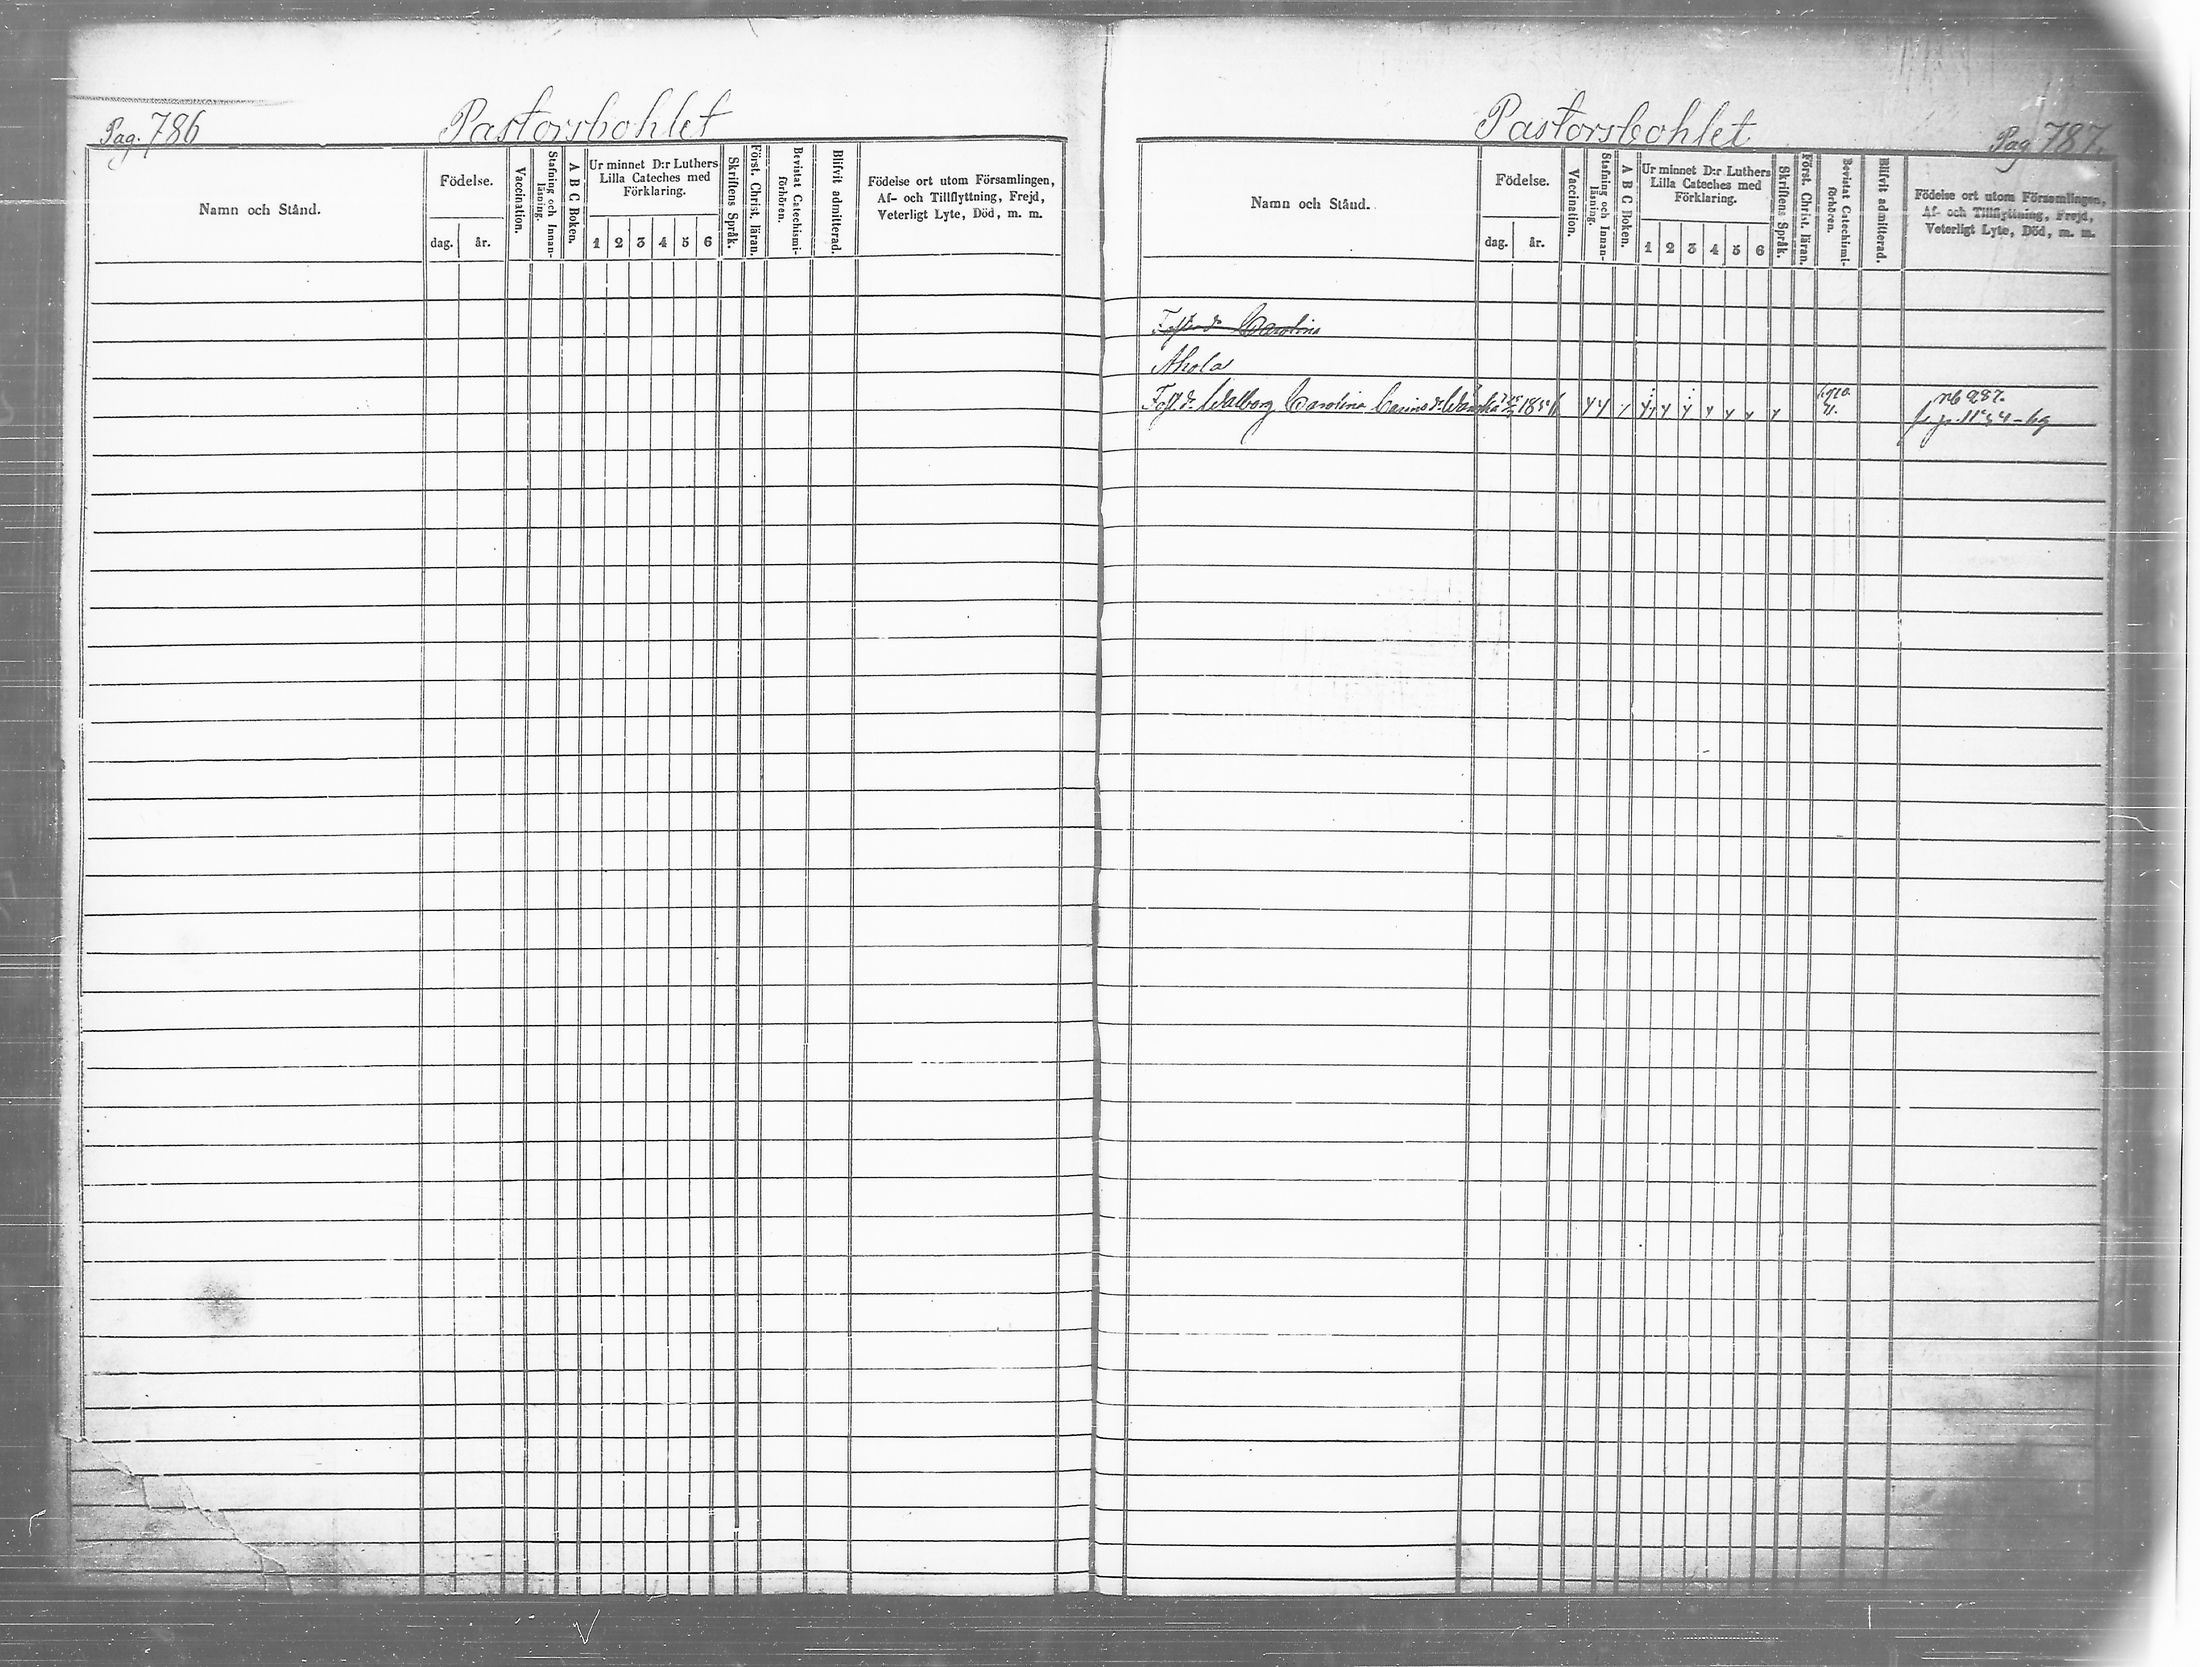 Pag. 786
Pastorsbohlet
Namn och Stånd.
Födelse.
dag.
år.
Vaccination.
Stafning och Innan-
läsning.
A B C Boken.
Ur minnet D:r Luthers
Lilla Cateches med
Förklaring.
1 2 3 4 5 6
Skriftens Språk.
Först. Christ. läran.
Bevistat Catechismi-
förhören.
Blifvit admitterad.
Födelse ort utom Församlingen,
Af- och Tillflyttning, Frejd,
Veterligt Lyte, Död, m. m.
Pastorsbohlet
Pag 787.
Namn och Stånd.
Födelse.
dag.
år.
Vaccination.
Stafning och Innan-
läsning.
A B C Boken.
Ur minnet D:r Luthers
Lilla Cateches med
Förklaring.
1 2 3 4 5 6
Skriftens Språk.
Först. Christ. läran.
Bevistat Catechismi-
förhören.
Blifvit admitterad.
Födelse ort utom Församlingen,
Af- och Tillflyttning, Frejd,
Veterligt Lyte, Död, m. m.
Carolina
Ahola
Fost. d. Walborg Carolina